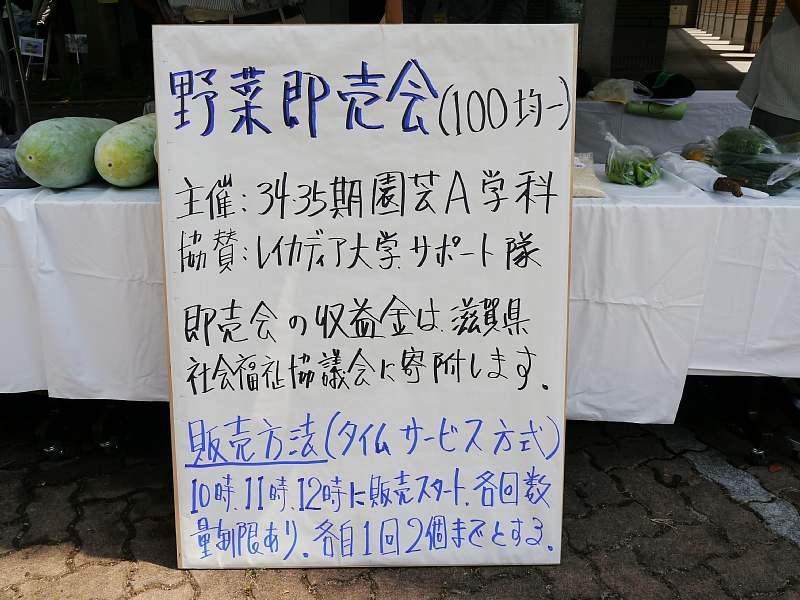 野菜即売会(100均一)
主催:34.35期園芸A学科
協賛:レイカディア大学.サポート隊
即売会の収益金は.滋賀県
社会福祉協議会に寄附します。
販売方法(タイムサービス方式)
10時.11時.12時に販売スタート.各回数
量制限あり.各自1回2個までとする。